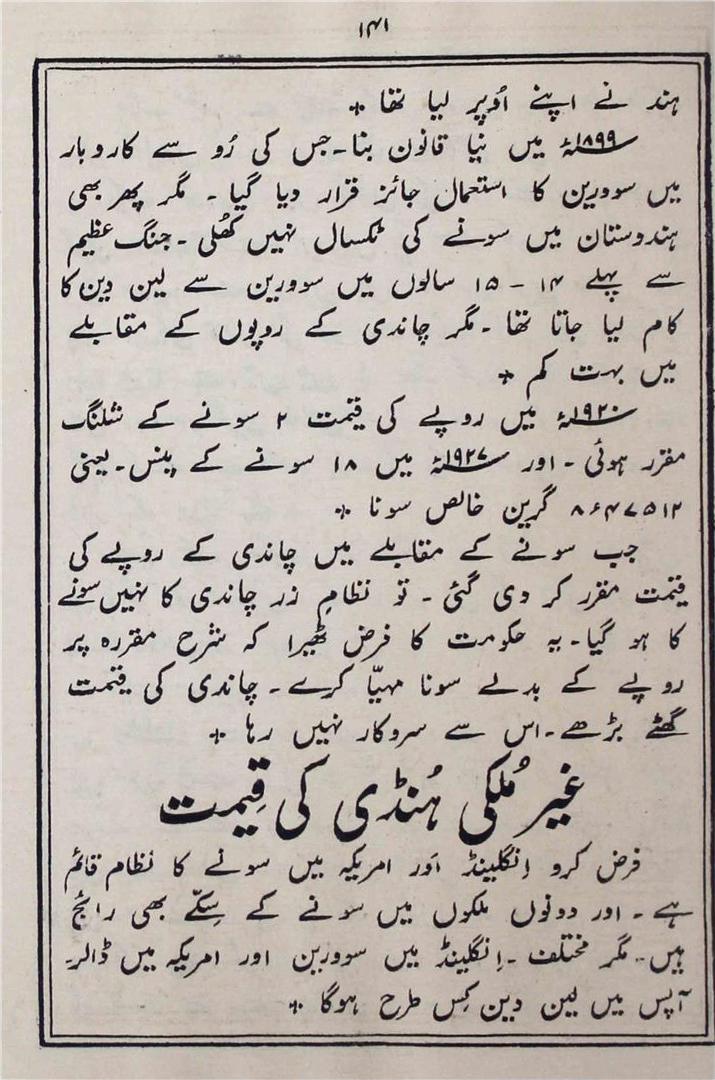 ۱۴۱
ہند نے اپنے اُوپر لیا تھا ٭
۱۸۹۹ء میں نیا قانون بنا۔ جس کی رُو سے کاروبار
میں سوورین کا استعمال جائز قرار دیا گیا ۔ مگر پھر بھی
ہندوستان میں سونے کی ٹکسال نہیں کھُلی ۔ جنگ عظیم
سے پہلے ۱۴ - ۱۵ سالوں میں سوورین سے لین دین کا
کام لیا جاتا تھا ۔ مگر چاندی کے روپوں کے مقابلے
میں بہت کم ٭
۱۹۲۰ء میں روپے کی قیمت ۲ سونے کے شلنگ
مقرر ہوئی ۔ اور ۱۹۲۷ء میں ۱۸ سونے کے پنس ۔ یعنی
۸ء۴۷۵۱۲ گرین خالص سونا ٭
جب سونے کے مقابلے میں چاندی کے روپے کی
قیمت مقرر کر دی گئی ۔ تو نظامِ زر چاندی کا نہیں سونے
کا ہو گیا ۔ یہ حکومت کا فرض ٹھیرا کہ شرح مقررہ پر
روپے کے بدلے سونا مہیّا کرے ۔ چاندی کی قیمت
گھٹے بڑھے ۔ اس سے سروکار نہیں رہا ٭
غیر مُلکی ہُنڈی کی قِیمت
فرض کرو اِنگلینڈ اَور امریکہ میں سونے کا نظام قائم
ہے ۔ اور دونوں ملکوں میں سونے کے سِکّے بھی رائج
ہیں ۔ مگر مختلف ۔ اِنگلینڈ میں سوورین اور امریکہ میں ڈالر ۔
آپس میں لین دین کِس طرح ہوگا ٭